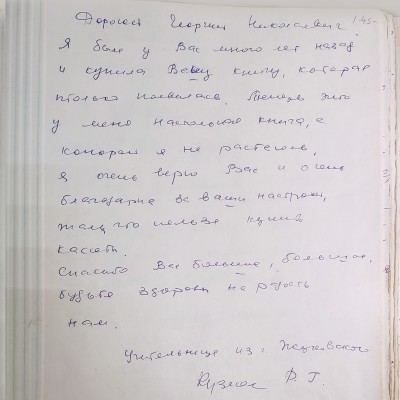 Дорогой Георгий Николаевич!
Я была у Вас много лет назад
и купила Вашу книгу, которая
только появилась. Теперь это
у меня настольная книга, с
которой я не расстаюсь,
Я очень верю Вас и очень
благодарна за ваши настрои,
жаль что нельзя купить
кассеты.
Спасибо Вас большое, большое,
будьте здоровы на радость
нам.
Учительница из г. Жуковского
Ф. Г.